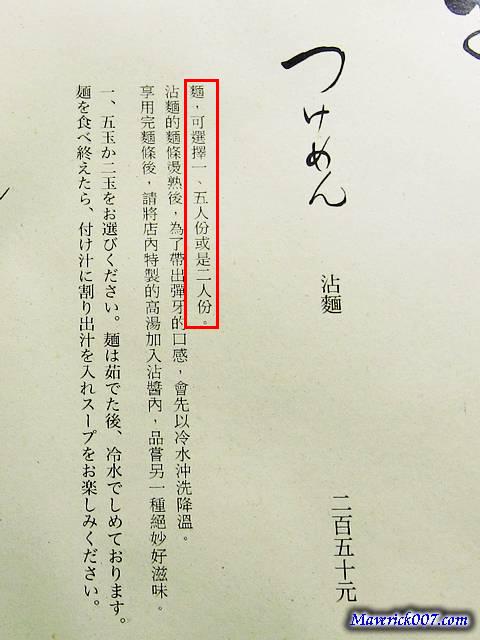 つけめん
沾麵
二百五十元
麵，可選擇一、五人份或是二人份。
沾麵的麵條燙熟後，為了帶出彈牙的口感，會先以冷水沖洗降溫。
享用完麵條後，請將店內特製的高湯加入沾醬內，品嘗另一種絕妙好滋味。
一、五玉か二玉をお選びください。麺は茹でた後、冷水でしめております。
麺を食べ終えたら、付け汁に割り出汁を入れスープをお楽しみください。
Maverick007.com